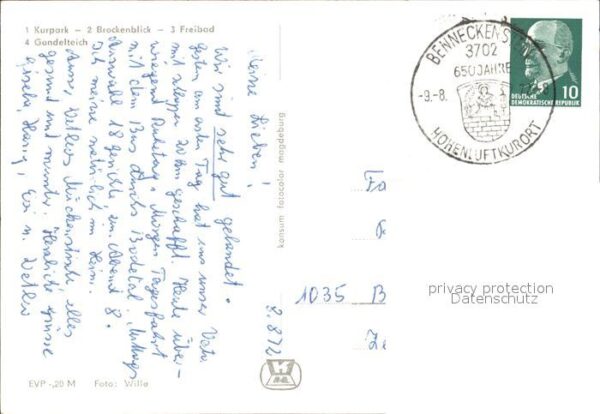 1 Kurpark - 2 Brockenblick - 3 Freibad
4 Gondelteich
Meine Lieben!
Wir sind sehr gut gelandet.
Gestern am ersten Tag hat uns unser
mit 20 km geschafft. Heute über-
wiegend Ruhetag, Morgen Tagesfahrt
mit dem Bus durchs Bodetal. Mittags
Auswahl 18 Gerichte, am Abend 8.
Ich meine natürlich im Heim.
Mückenstiche alles
gesund und munter. Herzliche Grüsse
u. Detlev
8.8.72
konsum fotocolor magdeburg
BENNECKENSTEIN
3702
650 JAHRE
-9.-8.
HÖHENLUFTKURORT
DEUTSCHE
DEMOKRATISCHE REPUBLIK
10
1035 B
privacy protection
Datenschutz
EVP -,20 M Foto: Willa